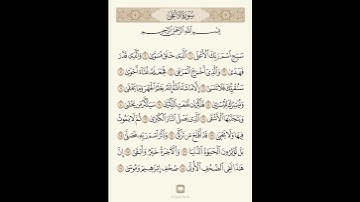 سورة الأعلى
بِسْمِ اللَّهِ الرَّحْمَٰنِ الرَّحِيمِ
سَبِّحِ اسْمَ رَبِّكَ الْأَعْلَى ١ الَّذِي خَلَقَ فَسَوَّىٰ ٢ وَالَّذِي قَدَّرَ
فَهَدَىٰ ٣ وَالَّذِي أَخْرَجَ الْمَرْعَىٰ ٤ فَجَعَلَهُ غُثَاءً أَحْوَىٰ ٥
سَنُقْرِئُكَ فَلَا تَنسَىٰ ٦ إِلَّا مَا شَاءَ اللَّهُ إِنَّهُ يَعْلَمُ الْجَهْرَ وَمَا يَخْفَىٰ ٧
وَنُيَسِّرُكَ لِلْيُسْرَىٰ ٨ فَذَكِّرْ إِن نَّفَعَتِ الذِّكْرَىٰ ٩ سَيَذَّكَّرُ مَن يَخْشَىٰ ١٠
وَيَتَجَنَّبُهَا الْأَشْقَى ١١ الَّذِي يَصْلَى النَّارَ الْكُبْرَىٰ ١٢ ثُمَّ لَا يَمُوتُ
فِيهَا وَلَا يَحْيَىٰ ١٣ قَدْ أَفْلَحَ مَن تَزَكَّىٰ ١٤ وَذَكَرَ اسْمَ رَبِّهِ فَصَلَّىٰ ١٥
بَلْ تُؤْثِرُونَ الْحَيَاةَ الدُّنْيَا ١٦ وَالْآخِرَةُ خَيْرٌ وَأَبْقَىٰ ١٧ إِنَّ
هَٰذَا لَفِي الصُّحُفِ الْأُولَىٰ ١٨ صُحُفِ إِبْرَاهِيمَ وَمُوسَىٰ ١٩